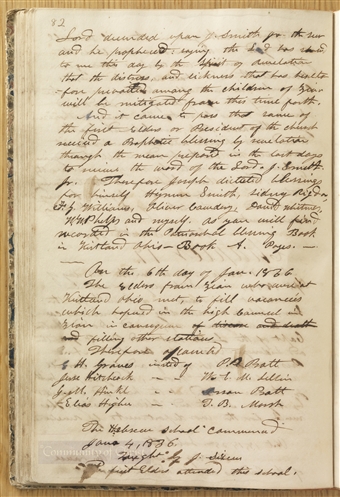 82
Lord decended upon J. Smith jr. the seer
and he prophecied, saying the Lord has
to me this day by the Spirit of revelation
that the distress, and sickness that has heretofore
prevailed among the children of Zion
will be mitigated from this time forth.
And it came to pass that some of
the first Elders or President of the church
received a Prophetic blessing by revelation
through the mean in the last days
to receive the word of the Lord. J. Smith
jr. Therefore Joseph dictated blessings
for himself, Hyrum Smith, Sidney Rigdon,
F. G. Williams, Oliver Cowdery, David Whitmer,
W. W. Phelps and myself. as you will find
recorded in the Patriarchal blessing Book
in Kirtland Ohio - Book A. Pages. —
— On the 6th day of Jan. 1836
The Elders from Zion who were at
Kirtland Ohio met, to fill vacancies
which in the high Council in
Zion in consequence of and death
and filling other stations.
Therefore
E. H. Groves instead of P. P. Pratt
Jesse Hitchcock — Wm E. Mc Lellin
G. M. Hinkle — Orson Pratt
Elias Higbee — T. B. Marsh
The Hebrew School commenced
Jany 4, 1836.
Taught by J.
The first Elders attended this school.
Community of